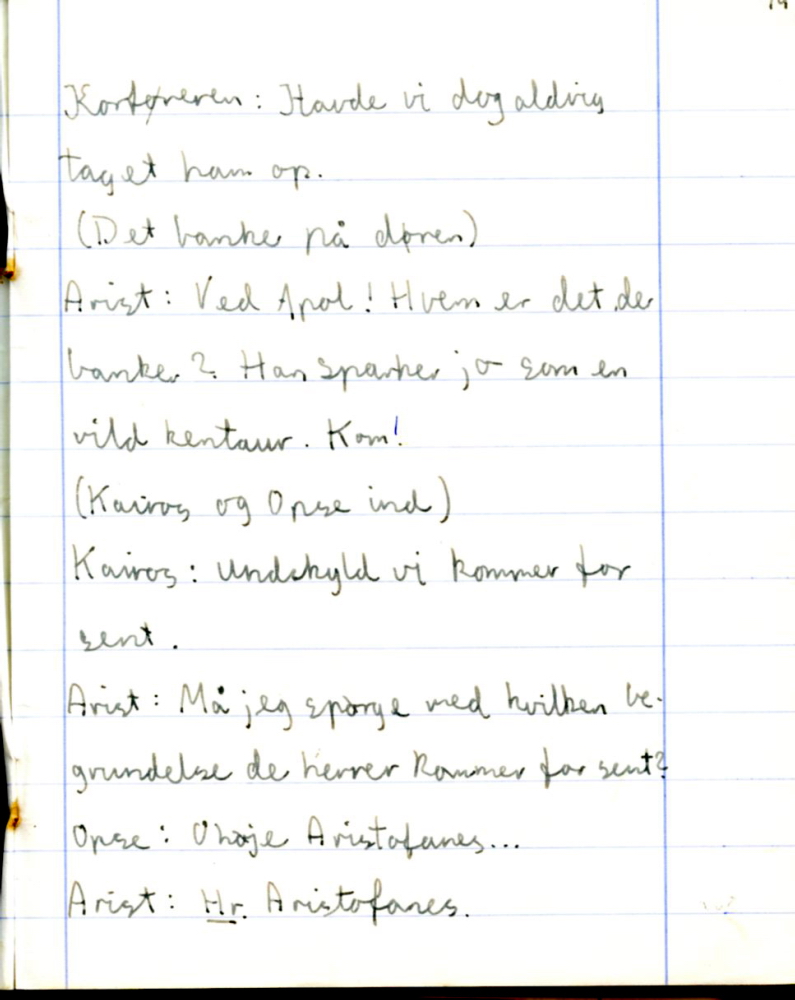 Korføreren: Havde vi dog aldrig
taget ham op.
(Det banke på døren)
Arist: Ved Apol! Hvem er det der
banker? Han sparker jo som en
vild kentaur. Kom!
(Kairos og Opse ind)
Kairos: Undskyld vi kommer for
sent.
Arist: Må jeg spørge med hvilken be-
grundelse de herrer kommer for sent?
Opse: O høje Aristofanes...
Arist: Hr. Aristofanes.